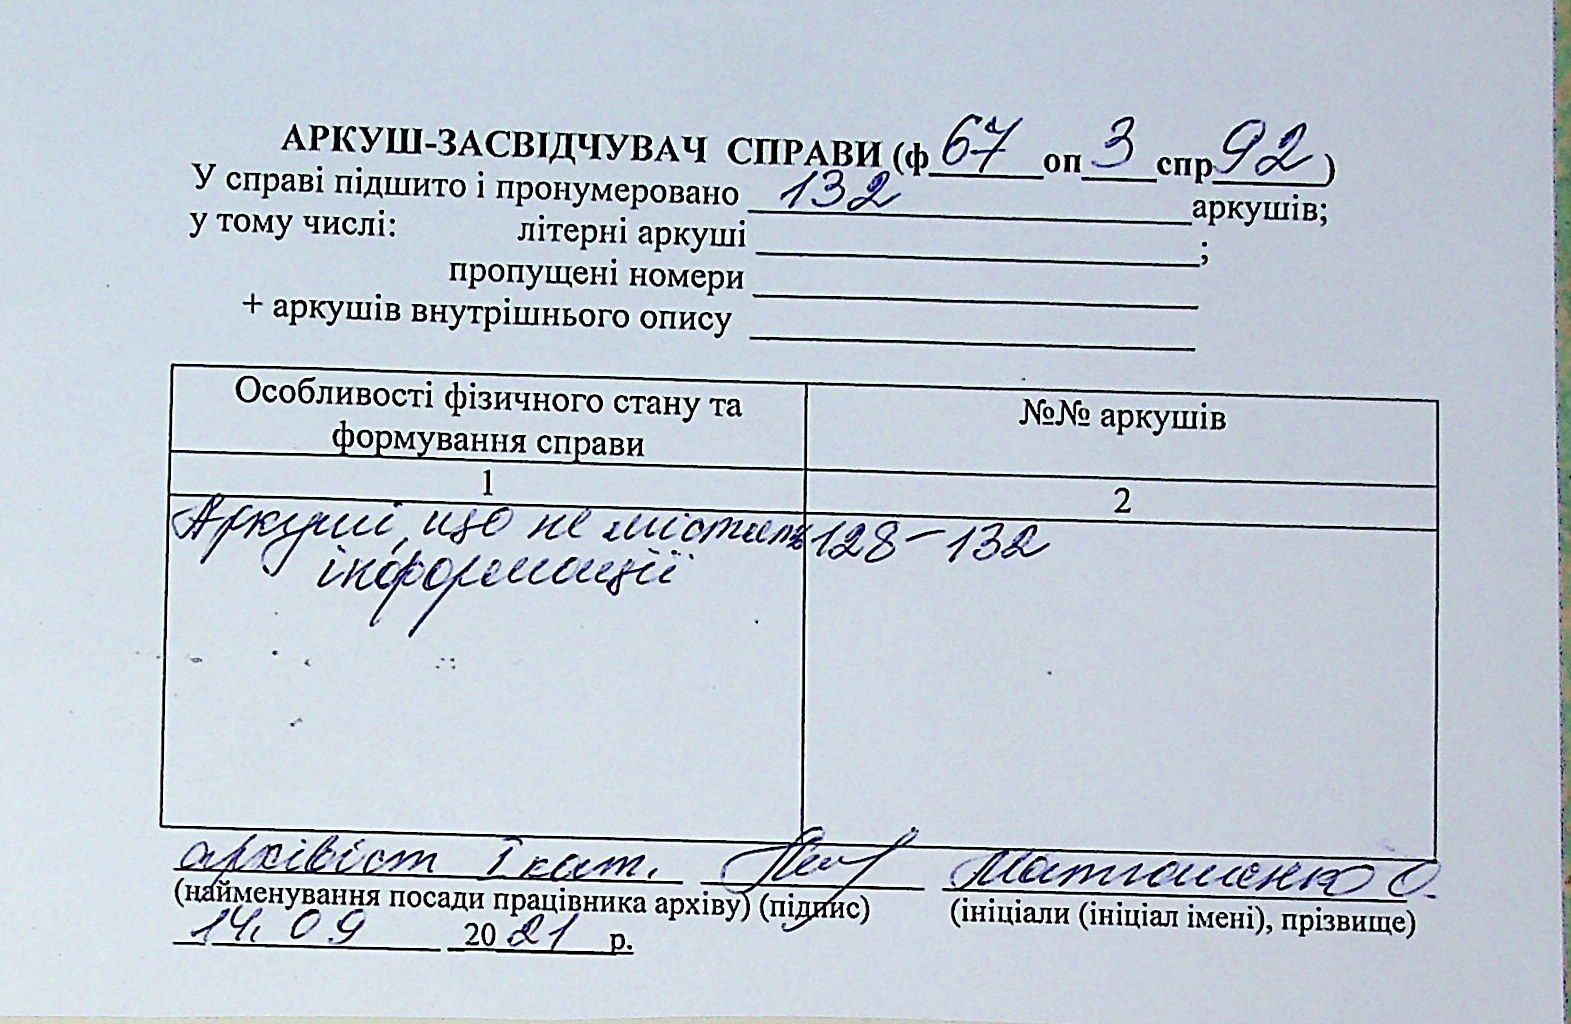 АРКУШ-ЗАСВІДЧУВАЧ СПРАВИ (ф 67 оп 3 спр 92 )
У справі підшито і пронумеровано 132 аркушів;
у тому числі: літерні аркуші ;
пропущені номери
+ аркушів внутрішнього опису
Особливості фізичного стану та формування справи
№№ аркушів
1
2
Аркуші, що не містять 128-132
інформації
архівіст І кат. Матюшенко О.
(найменування посади працівника архіву) (підпис) (ініціали (ініціал імені), прізвище)
14.09 2021 р.